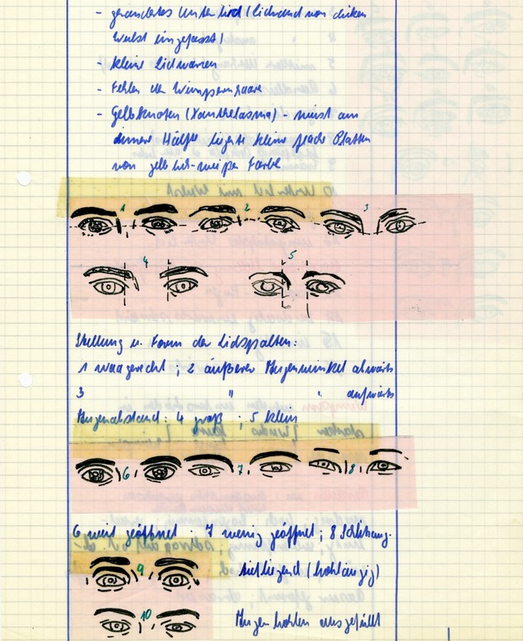 - gerändertes Unterlied (Lidrand von dicken
Wulst eingefasst)
- kleine Lidwarzen
- Fehlen der Wimpernhaare
- Gelbknoten (Xanthelasma) - meist am
innere Hälfte liegende kleine flache Platten
von gelblich-weißer Farbe
1 2 3
4 5
Stellung u. Form der Lidspalten:
1 waagerecht ; 2 äußerer Augenwinkel abwärts
3 " " aufwärts
Augenabstand: 4 groß ; 5 klein
6 7 8
6 weit geöffnet . 7 wenig geöffnet ; 8 Schlitzaug.
9 tiefliegend (hohläugig)
10 Augenhöhlen ausgefüllt